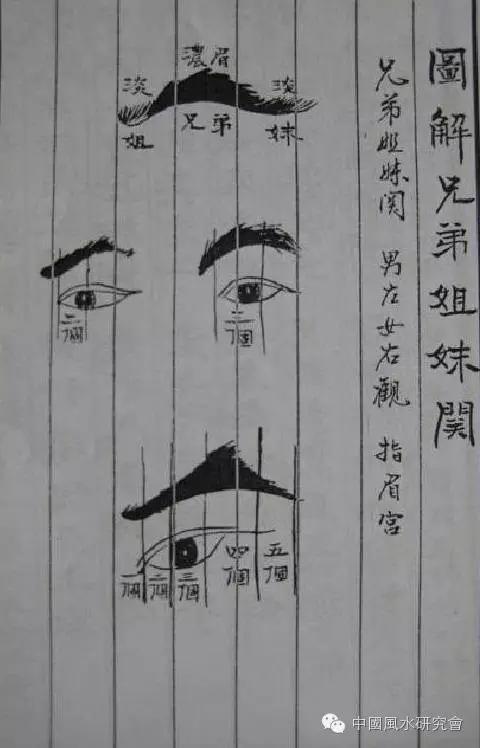 圖解兄弟姐妹関
兄弟姐妹関 男左女右觀 指眉宮
濃眉
淡
淡
姐
兄弟
妹
二個
三個
一個
二個
三個
四個
五個
中國風水研究會